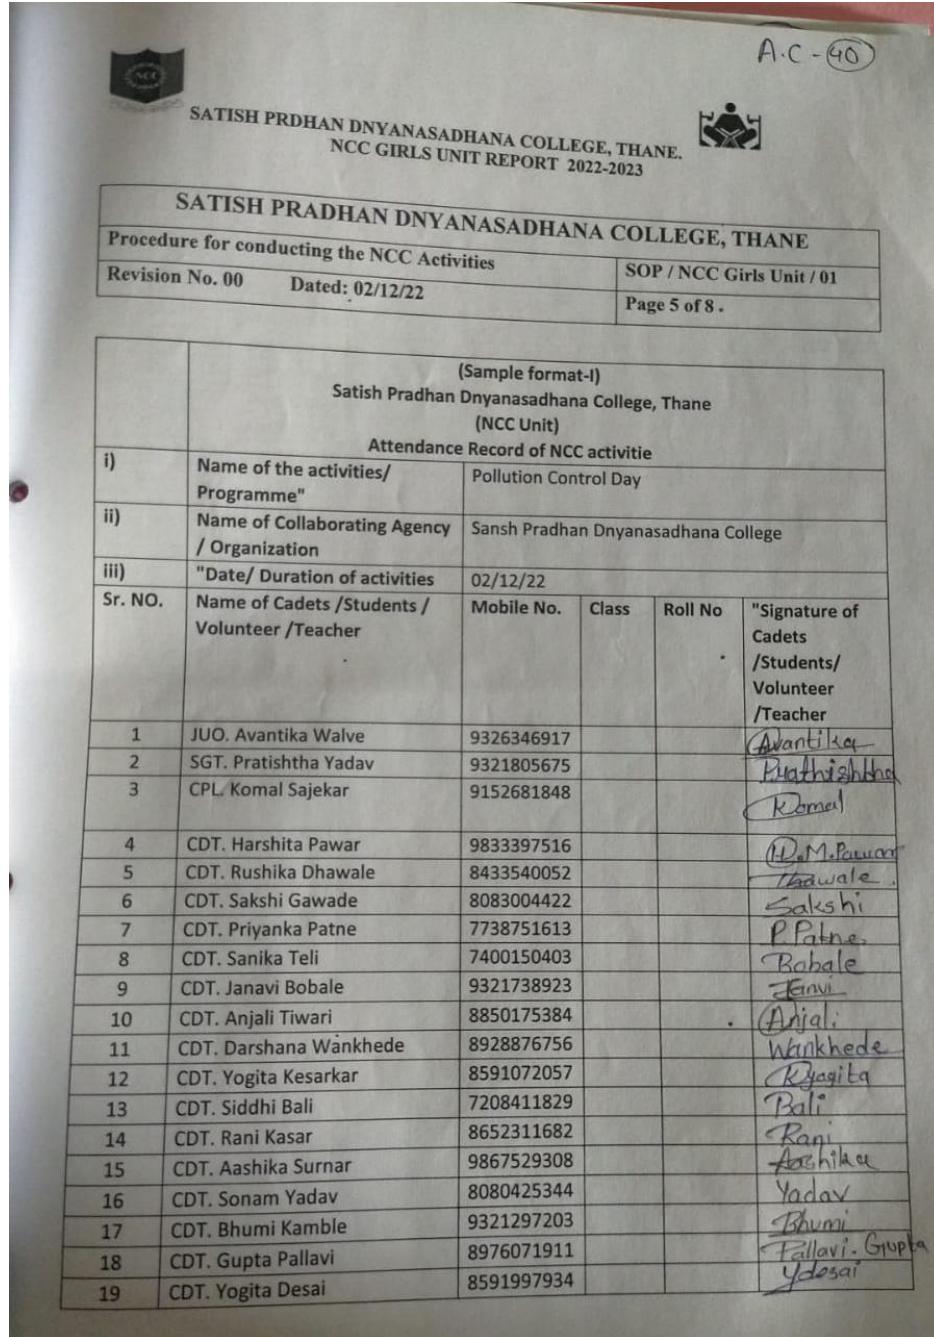 A.C - 40
NCC
SATISH PRDHAN DNYANASADHANA COLLEGE, THANE.
NCC GIRLS UNIT REPORT 2022-2023
SATISH PRADHAN DNYANASADHANA COLLEGE, THANE
Procedure for conducting the NCC Activities
SOP / NCC Girls Unit / 01
Revision No. 00 Dated: 02/12/22
Page 5 of 8
(Sample format-I)
Satish Pradhan Dnyanasadhana College, Thane
(NCC Unit)
Attendance Record of NCC activitie
i) Name of the activities/ Pollution Control Day
Programme"
ii) Name of Collaborating Agency Sansh Pradhan Dnyanasadhana College
/ Organization
iii) "Date/ Duration of activities 02/12/22
Sr. NO. Name of Cadets /Students / Mobile No. Class Roll No "Signature of
Volunteer /Teacher Cadets
/Students/
Volunteer
/Teacher
1 JUO. Avantika Walve 9326346917 Avantika
2 SGT. Pratishtha Yadav 9321805675 Prathishtha
3 CPL. Komal Sajekar 9152681848 Komal
4 CDT. Harshita Pawar 9833397516 H.M.Pawar
5 CDT. Rushika Dhawale 8433540052 Dhawale
6 CDT. Sakshi Gawade 8083004422 Sakshi
7 CDT. Priyanka Patne 7738751613 P.Patne.
8 CDT. Sanika Teli 7400150403 Bobale
9 CDT. Janavi Bobale 9321738923 Janvi
10 CDT. Anjali Tiwari 8850175384 Anjali
11 CDT. Darshana Wankhede 8928876756 Wankhede
12 CDT. Yogita Kesarkar 8591072057
13 CDT. Siddhi Bali 7208411829 Bali
14 CDT. Rani Kasar 8652311682 Rani
15 CDT. Aashika Surnar 9867529308 Aashika
16 CDT. Sonam Yadav 8080425344 Yadav
17 CDT. Bhumi Kamble 9321297203 Bhumi
18 CDT. Gupta Pallavi 8976071911 Pallavi. Gupta
19 CDT. Yogita Desai 8591997934 Ydesai